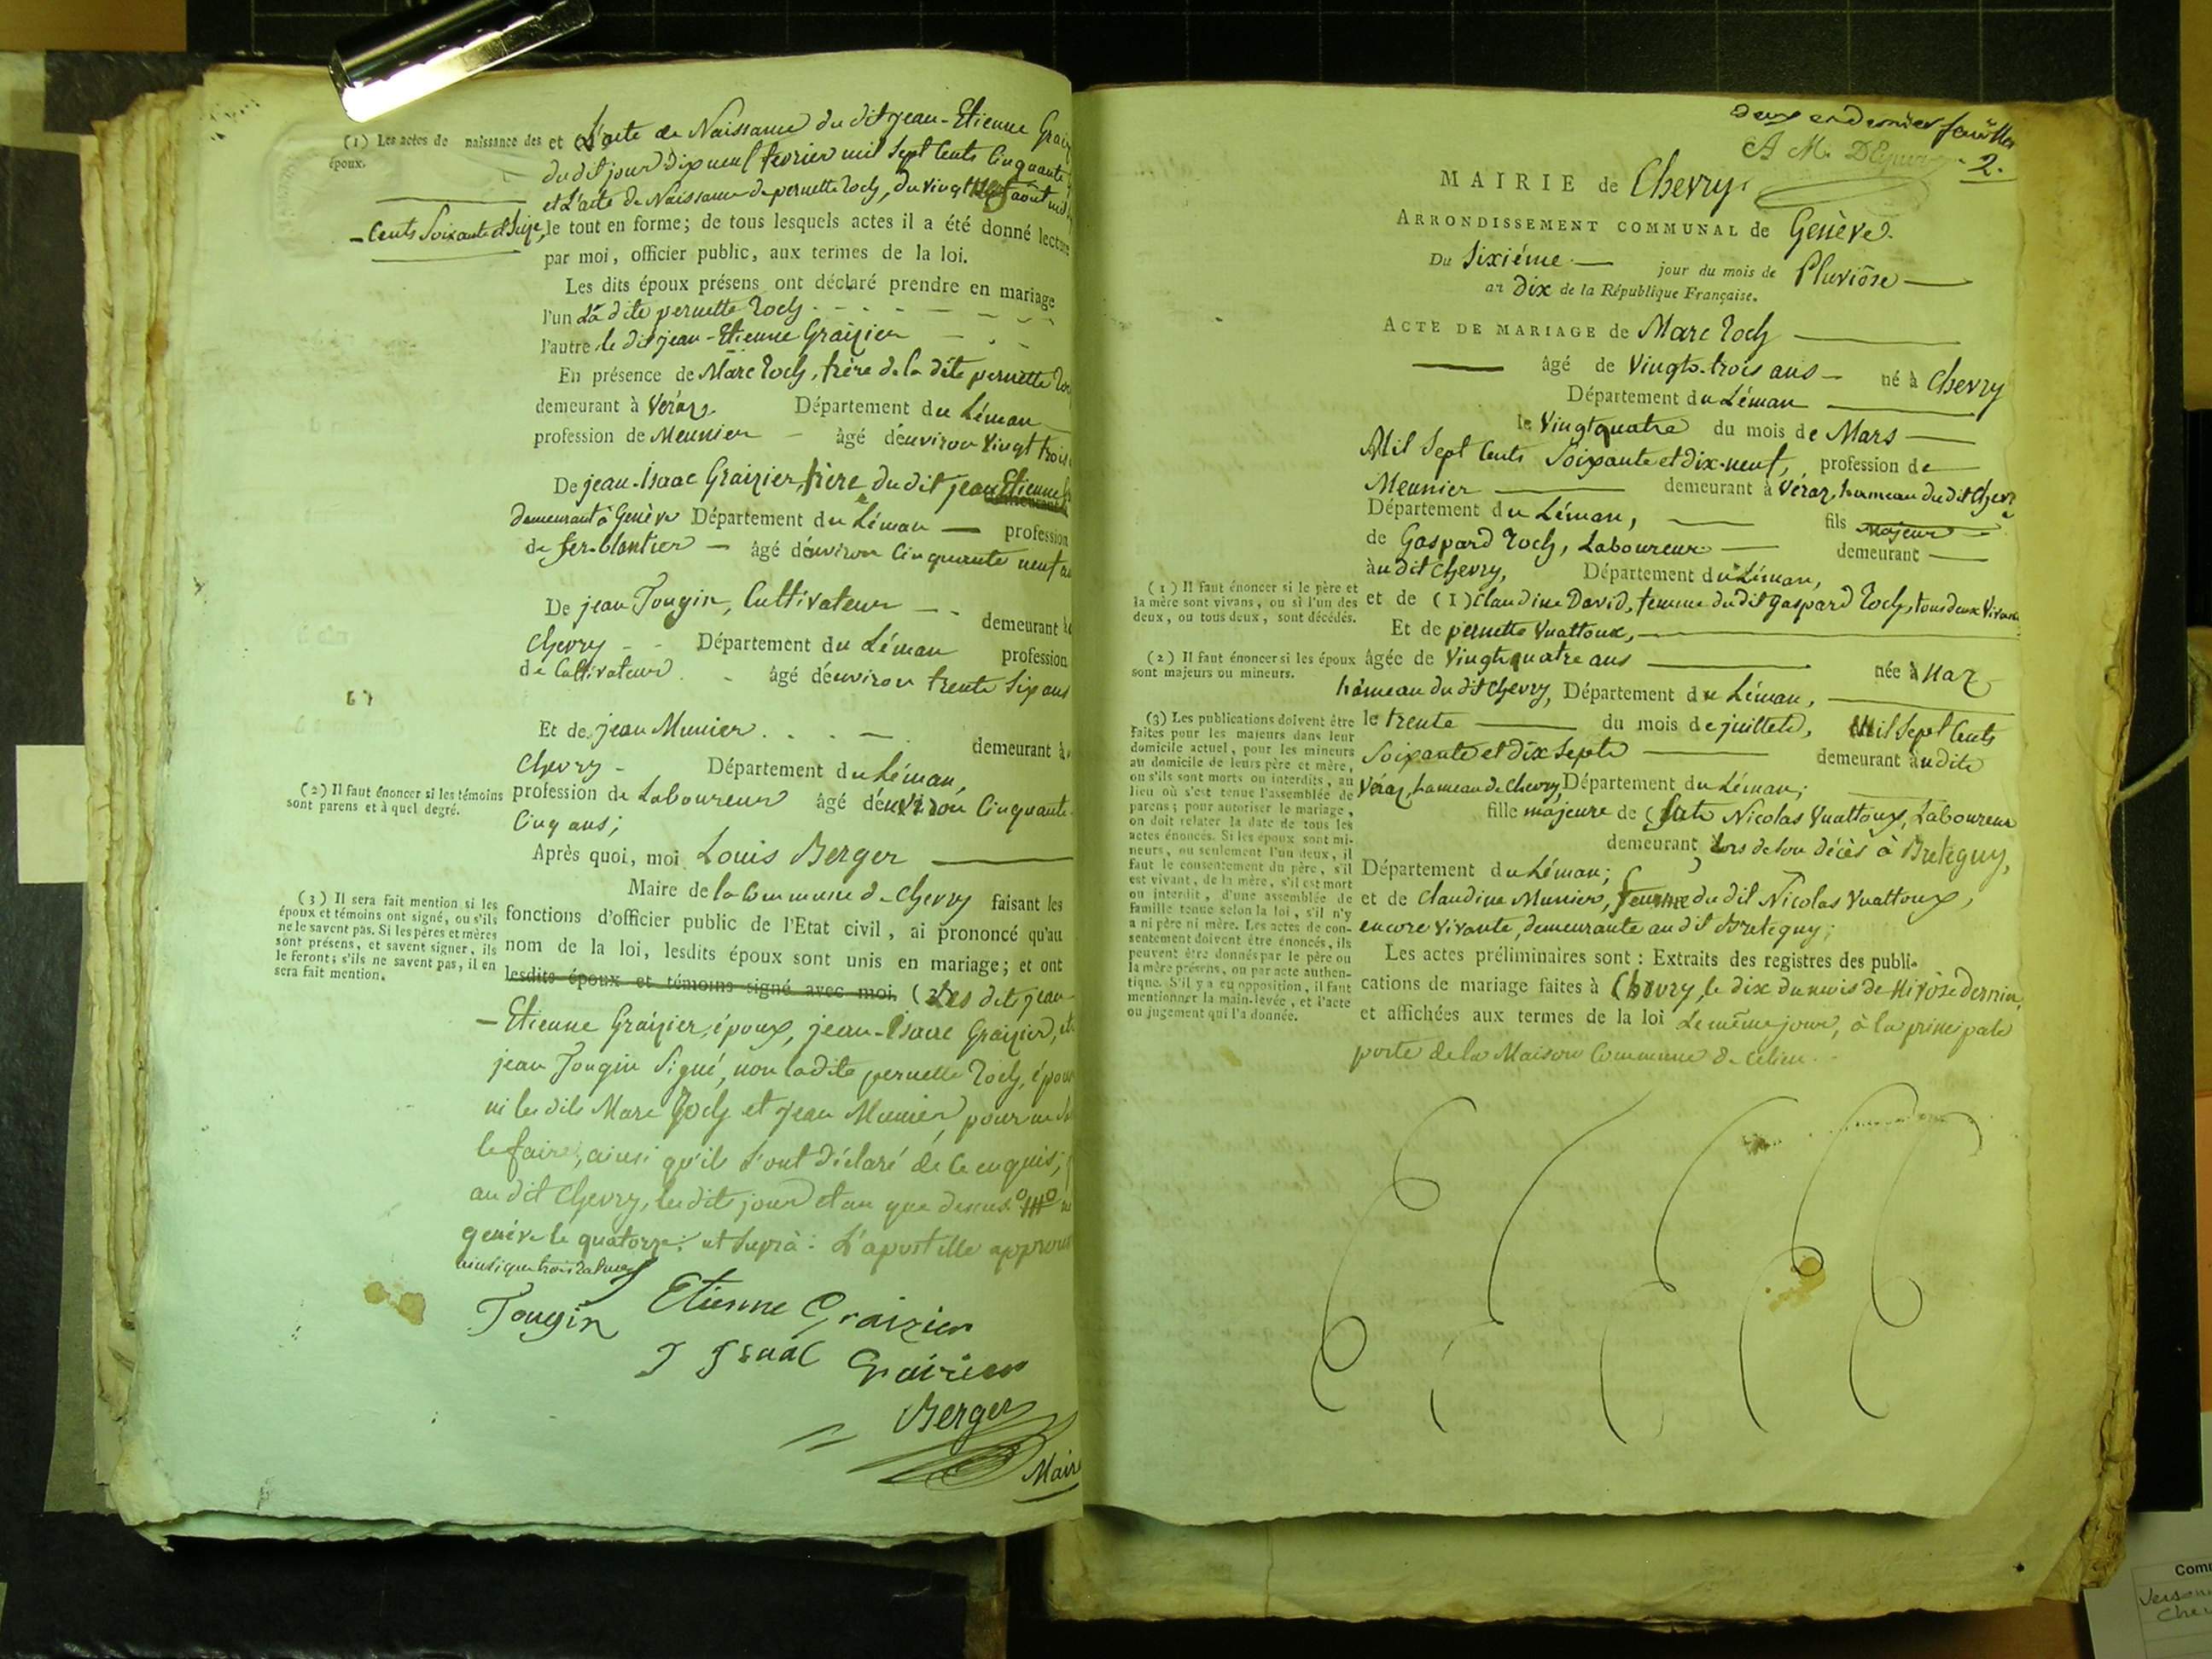 (1) Les actes de naissance des
époux.
et L'acte de Naissance du dit jean-Etienne
du dit jour dix neuf fevrier mil Sept Cents Cinquante
et L'acte de Naissance de pernette Roch, du vingt aôut mil
- Cents Soixante et Seize, le tout en forme; de tous lesquels actes il a été donné lecture
par moi, officier public, aux termes de la loi.
Les dits époux présens ont déclaré prendre en mariage
l'un La dite pernette Roch
l'autre le dit jean-Etienne Graizier
En présence de Marc Roch, frère de la dite pernette
demeurant à Veraz Département du Léman
profession de Meunier - âgé d'environ Vingt trois
De jean-Isaac Graizier, frère du dit jean Etienne
demeurant à Genève Département du Léman — profession
de fer-blantier — âgé d'environ Cinquante neuf
De jean Tougin, Cultivateur - - demeurant à
Chevry - - Département du Léman profession
de Cultivateur - âgé d'environ trente Six ans
Et de jean Munier demeurant à
Chevry - Département du Léman,
(2) Il faut énoncer si les témoins
sont parens et à quel degré.
profession de Laboureur âgé d'environ Cinquante-
Cinq ans;
Après quoi, moi Louis Berger
Maire de la Commune de Chevry faisant les
(3) Il sera fait mention si les
époux et témoins ont signé, ou s'ils
ne le savent pas. Si les pères et mères
sont présens, et savent signer, ils
le feront; s'ils ne savent pas, il en
sera fait mention.
fonctions d'officier public de l'Etat civil, ai prononcé qu'au
nom de la loi, lesdits époux sont unis en mariage; et ont
lesdits époux et témoins signé avec moi. Les dits jean
- Etienne Graizier, époux, jean-Isaac Graizier, et
jean Tougin Signé, non ladite pernette Roch, épouse
ni les dits Marc Roch et jean Munier, pour ne
le faire, ainsi qu'ils l'ont déclaré de ce enquis;
au dit Chevry, les dits jour et an que dessus.
genève le quatorze. ut Suprà: L'apostille
ainsi que trois
Tougin
Etienne Graizier
J Isaac Graizier
Berger
Maire
deux et dernier feuillet
A M.
2.
MAIRIE de Chevry
ARRONDISSEMENT COMMUNAL de Genève.
Du Sixiéme — jour du mois de Pluviôse —
an Dix de la République Française.
ACTE DE MARIAGE de Marc Roch
âgé de Vingt-trois ans — né à Chevry
Département du Léman
le Vingt quatre du mois de Mars
Mil Sept Cents Soixante et dix-neuf, profession de
Meunier demeurant à Véraz, hameau du dit
Département du Léman, — fils majeur
de Gaspard Roch, Laboureur — demeurant —
au dit Chevry, Département du Léman,
(1) Il faut énoncer si le père et
la mère sont vivans, ou si l'un des
deux, ou tous deux, sont décédés.
et de (1) Claudine David, femme du dit Gaspard Roch, tous deux Vivans
Et de pernette Vuattoux,
(2) Il faut énoncer si les époux
sont majeurs ou mineurs.
âgée de Vingt quatre ans née à Naz
hameau du dit Chevry, Département du Léman,
(3) Les publications doivent être
faites pour les majeurs dans leur
domicile actuel, pour les mineurs
au domicile de leurs père et mère,
ou s'ils sont morts ou interdits, au
lieu où s'est tenue l'assemblée de
parens; pour autoriser le mariage,
on doit relater la date de tous les
actes énoncés. Si les époux sont mi-
neurs, ou seulement l'un deux, il
faut le consentement du père, s'il
est vivant, de la mère, s'il est mort
ou interdit, d'une assemblée de
famille tenue selon la loi, s'il n'y
a ni père ni mère. Les actes de con-
sentement doivent être énoncés, ils
peuvent être donnés par le père ou
la mère présens, ou par acte authen-
tique. S'il y a eu opposition, il faut
mentionner la main-levée, et l'acte
ou jugement qui l'a donnée.
le trente du mois de juillet, Mil Sept Cents
Soixante et dix Sept demeurant audite
Véraz, hameau de Chevry, Département du Léman;
fille majeure de Nicolas Vuattoux, Laboureur
demeurant lors de son décès à Bretegny,
Département du Léman;
et de Claudine Munier, femme du dit Nicolas Vuattoux,
encore Vivante, demeurante au dit Bretegny;
Les actes préliminaires sont : Extraits des registres des publi-
cations de mariage faites à Chevry, le dix du mois de Nivôse dernier,
et affichées aux termes de la loi Le même jour, à la principale
porte de la Maison Commune de
Com
Che